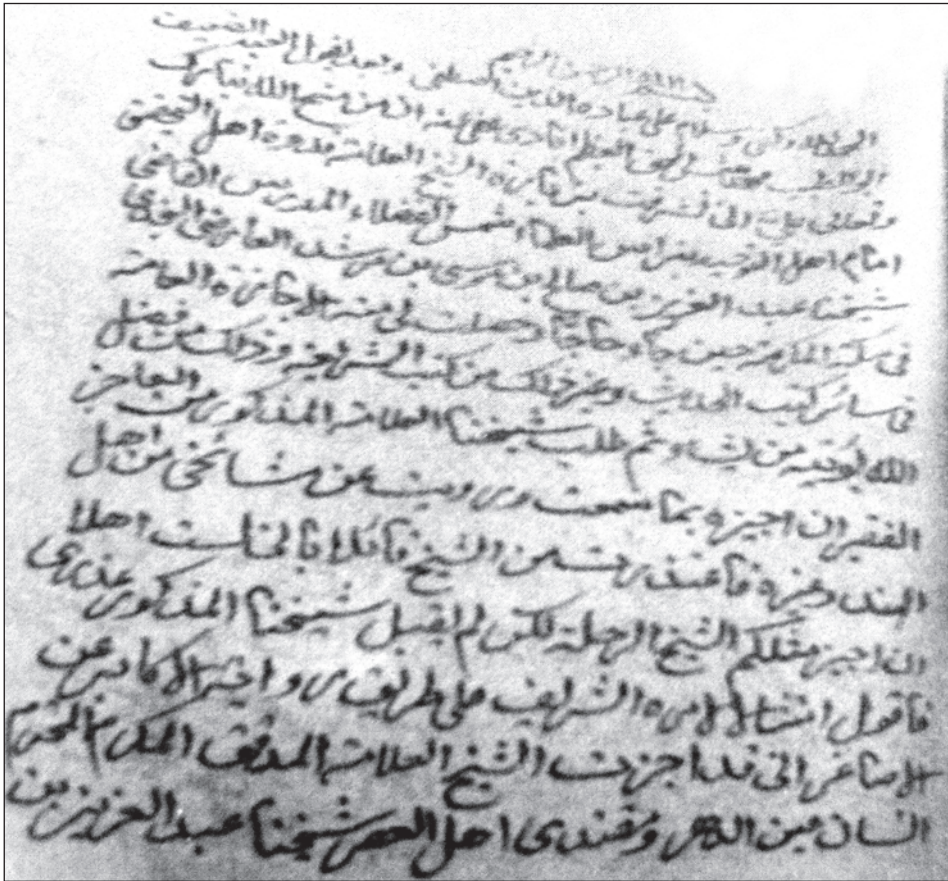 بسم الله الرحمن الرحيم
الحمد لله وكفى وسلام على عباده الذين اصطفى وبعد فيقول العبد الضعيف
القادري عفي عنه ان من منح الله تبارك
وتعالى علي اني تشرفت بزيارة الشيخ العلامة قدوة اهل التحقيق
امام اهل التوحيد العلماء شمس الفضلاء المدرس القاضي
شيخنا عبد العزيز بن صالح بن موسى بن مرشد
في مكة المكرمة حين جاء حاجا وحصلت لي منه الاجازة العامة
في سائر كتب الحديث وغير ذلك من كتب الشرايع وذلك من فضل
الله يؤتيه من يشاء ثم طلب شيخنا العلامة المذكور من العاجز
الفقير ان اجيزه بما سمعت ورويت عن مشائخي من اهل
الهند وغيره فاعتذرت من الشيخ قائلا اني لست اهلا
ان اجيز مثلكم الشيخ الرحلة لكن لم يقبل شيخنا المذكور عذري
فاقول امتثالا لامره الشريف على طريق رواية الاكابر عن
الاصاغر اني قد اجزت الشيخ العلامة المدقق المكرم المحترم
انسان عين الدهر ومقتدى اهل العصر شيخنا عبد العزيز بن